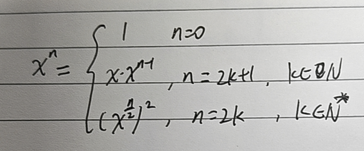 1 n=0
xⁿ= { x·xⁿ⁻¹ , n=2k+1, k∈N
(x^(n/2))² , n=2k , k∈N*